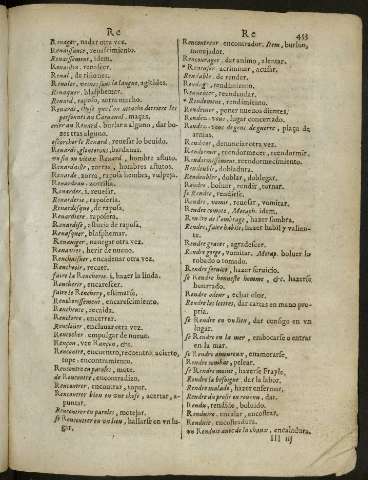 Re
Renager, nadar otra vez.
Renaissance, renascimiento.
Renaissement, idem.
Renaistre, renascer.
Renal, de riñones.
Renales, veines sous la langue, agelides.
Renaquer, blasphemar.
Renard, raposo, zorra macho.
Renards, Ouys que l'on attache derriere les
personnes au Carnaval, mazas.
crier au Renard, burlar a alguno, dar bo-
zes tras alguno.
escorcher le Renard, revesar lo bevido.
Renards,
un fin ou vieux Renard, hombre astuto.
Renardaille, zorras, hombres astutos.
Renarde, zorra, raposa hembra, vulpeja.
Renardeau, zorrilla.
Renarder, revesar.
Renarderie, raposeria.
Renardesque, de raposa.
Renardiere, raposera.
Renardise, astucia de raposa.
Renasquer, blasphemar.
Renauiger, nauegar otra vez.
Renaurer, herir de nueuo.
Renchaisner, encadenar otra vez.
Rencheoir, recaer.
faire la Rencherie, hazer la linda.
Rencherir, encarescer.
faire le Renchery,
Rencherissement, encarescimiento.
Rencheute, recaida.
Renclorre, encerrar.
Renclouer, enclauar otra vez.
Rencontrer, empuñar de nueuo.
Rençon, vee Rançon, &c.
Rencontre, encuentro, recuentro, acierto,
tope, encontramiento.
Rencontre en paroles, mote.
de Rencontre, encontradizo.
Rencontrer, encontrar, topar.
Rencontrer bien en une chose, acertar, a-
puntar.
Rencontrer en paroles, motejar.
se Rencontrer en un lieu, hallarse en vn lu-
gar.
Re
433
Rencontreur, encontrador. Item, burlon,
motejador.
Rencourager, dar animo, alentar.
Rencuser, acriminar, acusar.
Rendable, de rendir.
Rendement, rendimiento.
Rendonner, poner nueuos dientes.
Rendez-vous, lugar concertado.
Rendez-vous de gens de guerre, plaça de
armas.
Rendormir, reendormecer, reendormir.
Rendormissement, reendormecimiento.
Rendouble, dobladura.
Rendoubler, doblar, doblegar.
Rendre, boluer, rendir, tornar.
se Rendre, rendirse.
Rendre, vomir, reuesar, vomitar.
Rendre compte, idem.
Rendre de l'ombrage, hazer sombra.
Rendre, faire habile, hazer habil y valien-
te.
Rendre graces, agradescer.
Rendre gorge, vomitar. Metap. boluer lo
robado o tomado.
Rendre seruice, hazer seruicio.
se Rendre honneste homme, &c. hazerse
honrrado.
Rendre odeur, echar olor.
Rendre les lettres, dar cartas en mano pro-
pria.
se Rendre en un lieu, dar consigo en vn
lugar.
se Rendre en la mer, embocarse o entrar
en la mar.
se Rendre amoureux, enamorarse.
Rendre combat, pelear.
se Rendre moine, hazerse Frayle.
Rendre la besoigne, der la labor.
Rendre malade, hazer enfermar.
Rendre du profit ou reuenu, dar.
Rendu, rendido, boluido.
Renduire, encalar, encostrar.
Renduite, encostradura.
un Renduit auec de la chaux, encaladura.
lll iij